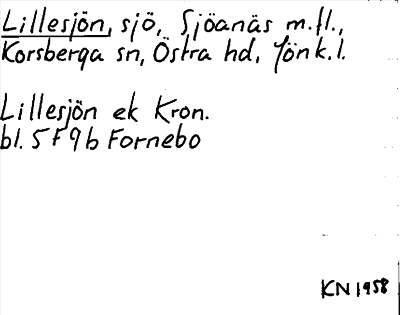 Lillesjön, sjö, Sjöanäs m.fl.,
Korsberga sn, Östra hd, Jönk.l.
Lillesjön ek Kron.
bl. 5F9b Fornebo
KN 1958